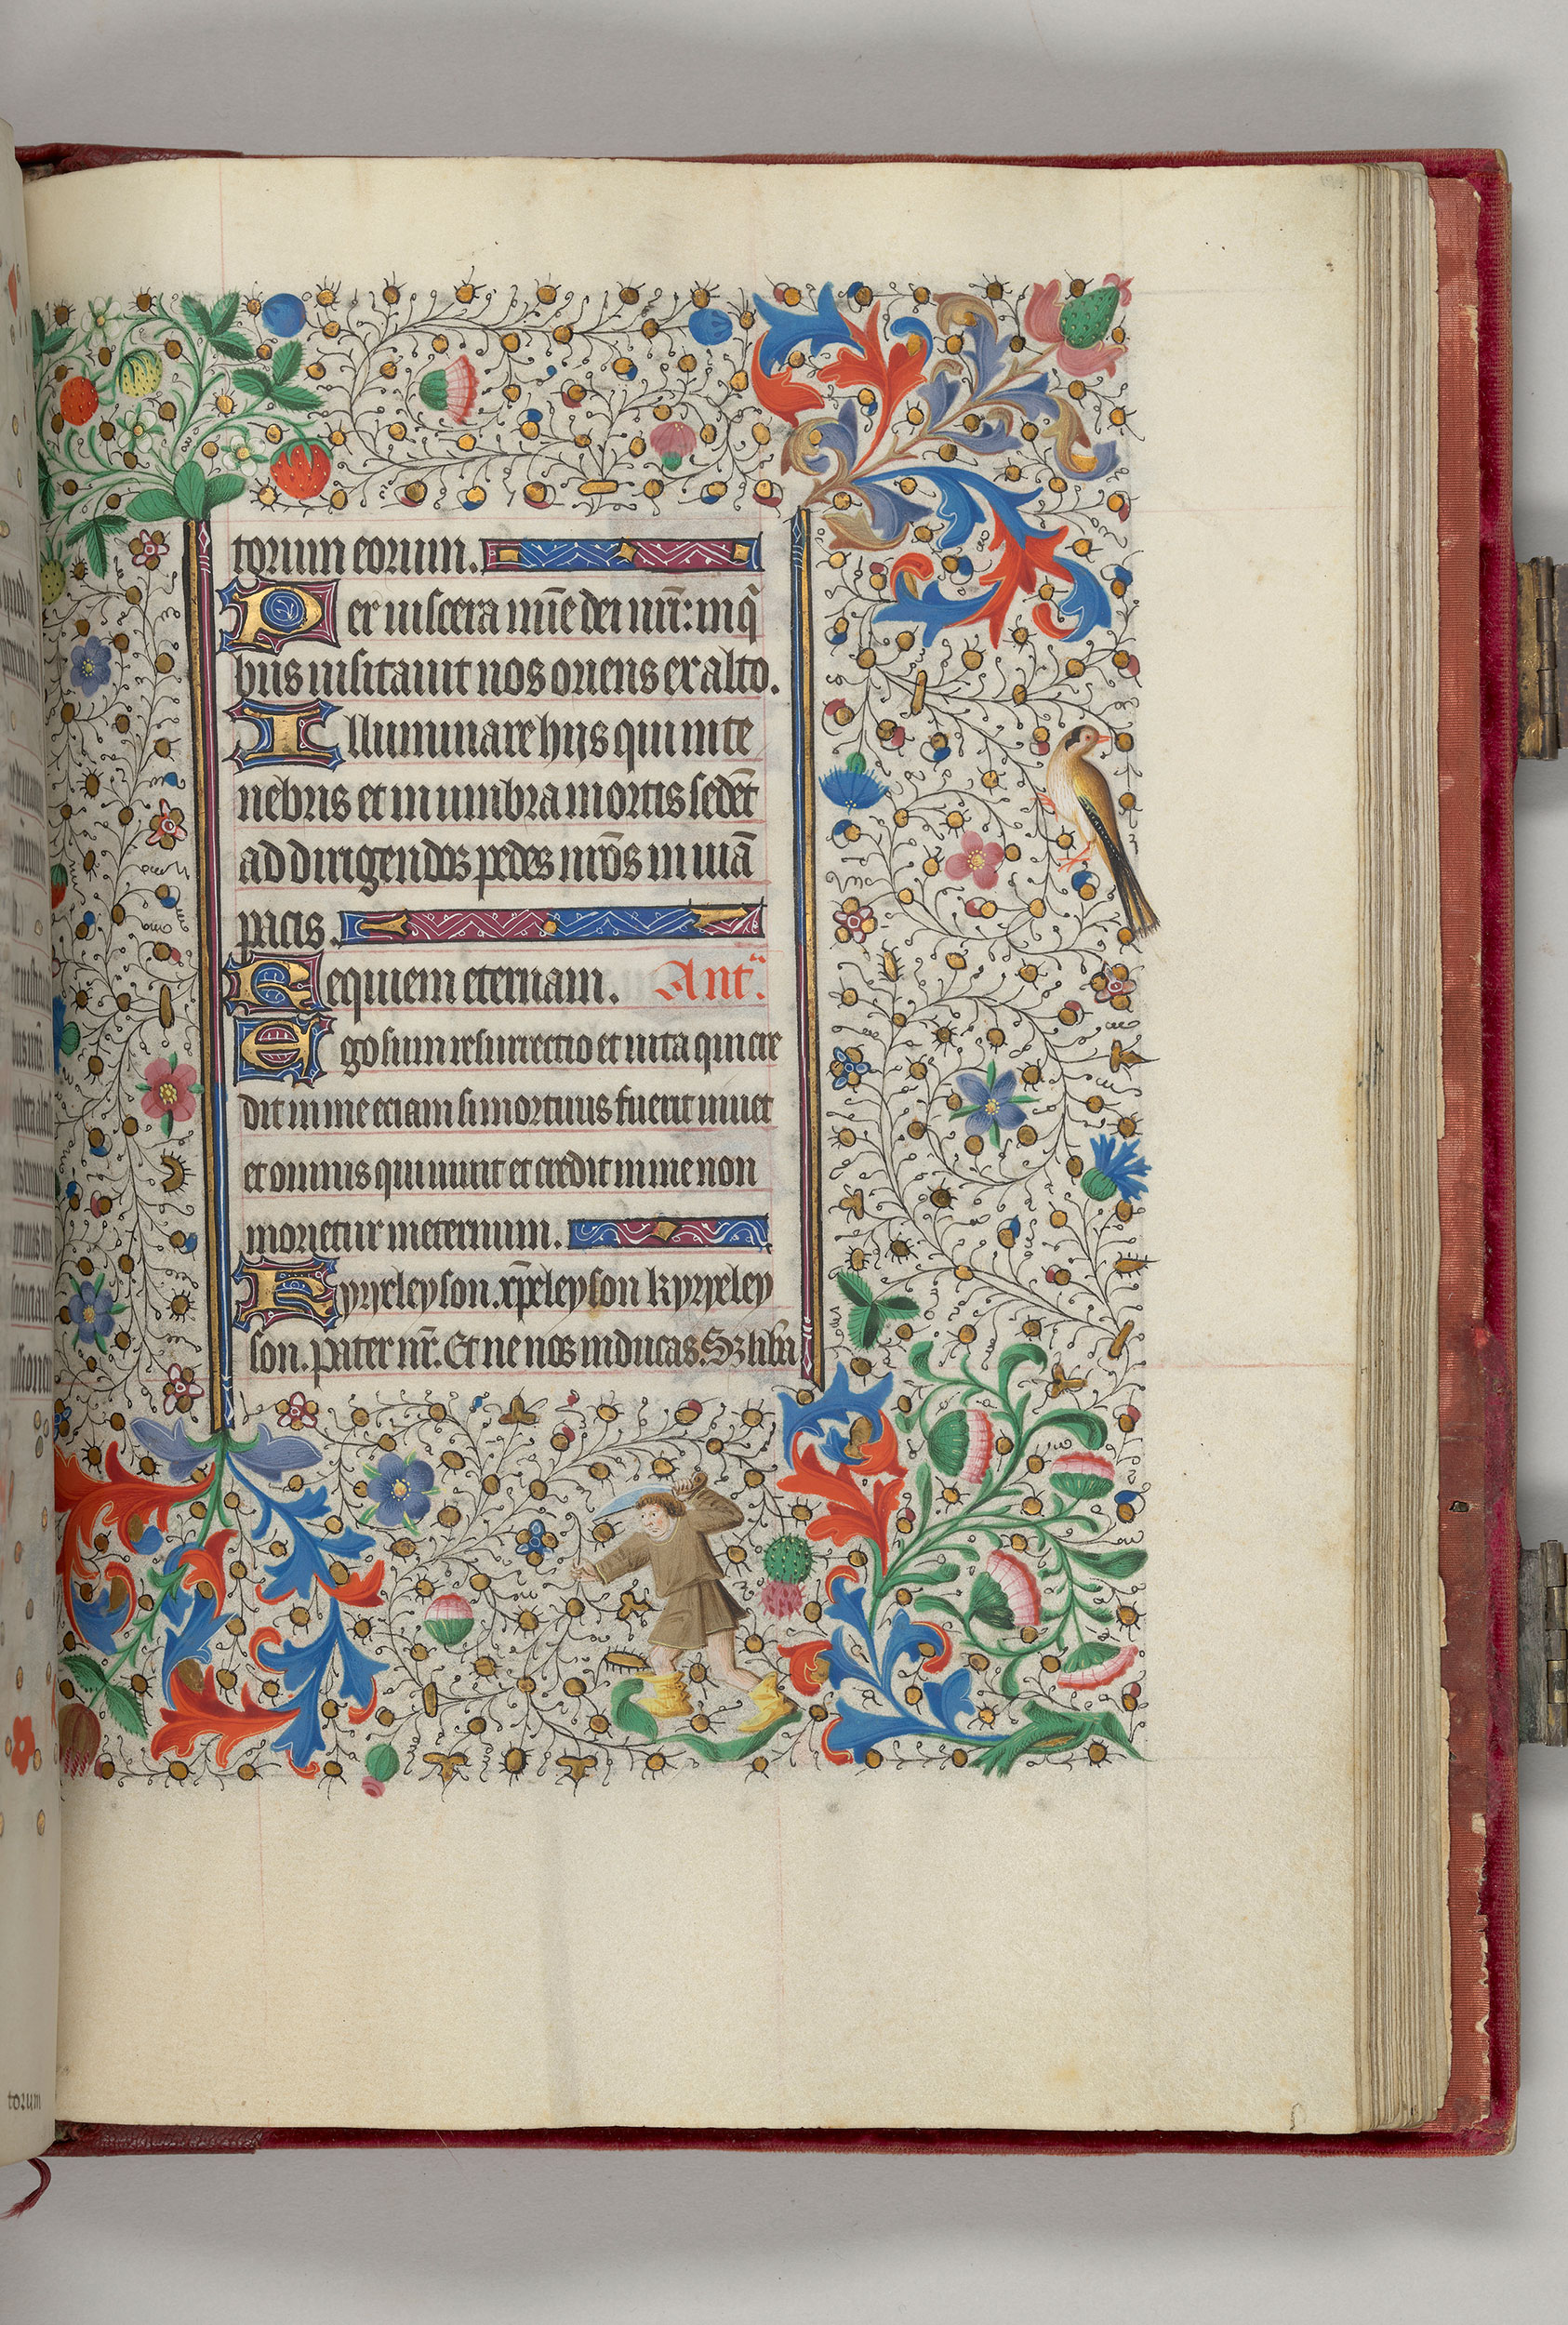 torum eorum.
Per uiscera mīe dei nrī: in q̄
bus uisitauit nos oriens ex alto.
Illuminare hijs qui in te
nebris et in umbra mortis sedēt
ad dirigendos pedes nrōs in uiā
pacis.
Requiem eternam. Antᵃ.
Ego sum resurrectio et uita qui cre
dit in me eciam si mortuus fuerit uiuet
et omnis qui uiuit et credit in me non
morietur in eternum.
Kyryeleyson. xp̄eleyson kyryeley
son. Pater nr̄. Et ne nos inducas. Sz libā
torum